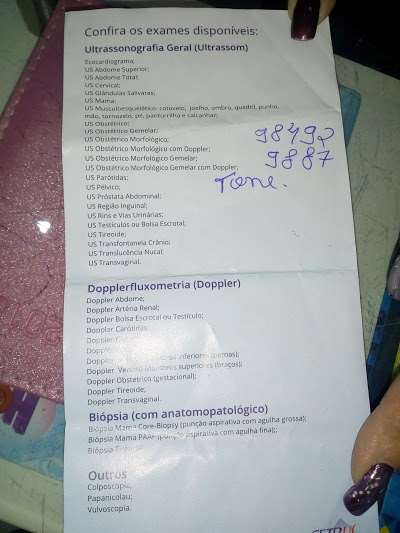 Confira os exames disponíveis:
Ultrassonografia Geral (Ultrassom)
Ecocardiograma;
US Abdome Superior;
US Abdome Total;
US Cervical;
US Glândulas Salivares;
US Mama;
US Musculoesquelético: cotovelo, joelho, umbro, quadril, punho,
mão, tornozelo, pé, panturrilha e calcanhar;
US Obstétrico;
US Obstétrico Gemelar;
US Obstétrico Morfológico;
US Obstétrico Morfológico com Doppler;
US Obstétrico Morfológico Gemelar;
US Obstétrico Morfológico Gemelar com Doppler;
US Parótidas;
US Pélvico;
US Próstata Abdominal;
US Região Inguinal;
US Rins e Vias Urinárias;
US Testículos ou Bolsa Escrotal;
US Tireoide;
US Transfontanela Crânio;
US Translucência Nucal;
US Transvaginal.
98492
9887
Dopplerfluxometria (Doppler)
Doppler Abdome;
Doppler Artéria Renal;
Doppler Bolsa Escrotal ou Testículo;
Doppler Carótidas;
Doppler
Doppler
Doppler inferiores (pernas);
Doppler superiores (braços);
Doppler Obstétrico (gestacional);
Doppler Tireoide;
Doppler Transvaginal.
Biópsia (com anatomopatológico)
Biópsia Mama Core-Biopsy (punção aspirativa com agulha grossa);
Biópsia Mama PAAF (punção aspirativa com agulha fina);
Biópsia
Outros
Colposcopia;
Papanicolau;
Vulvoscopia.